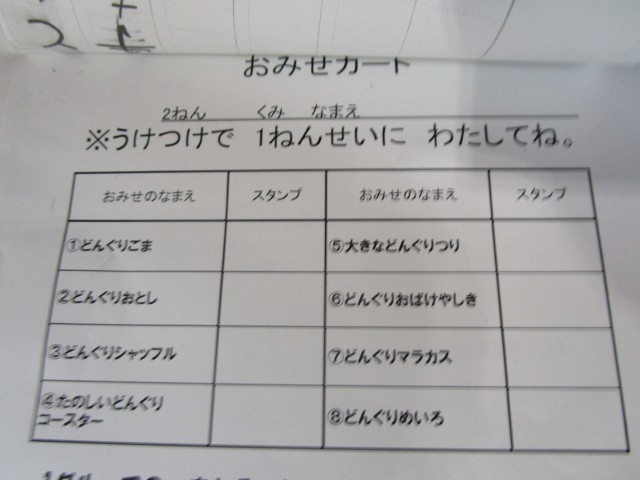 おみせカード
2ねん くみ なまえ
※うけつけで 1ねんせいに わたしてね。
おみせのなまえ スタンプ おみせのなまえ スタンプ
①どんぐりごま ⑤大きなどんぐりつり
②どんぐりおとし ⑥どんぐりおばけやしき
③どんぐりシャッフル ⑦どんぐりマラカス
④たのしいどんぐり
コースター ⑧どんぐりめいろ